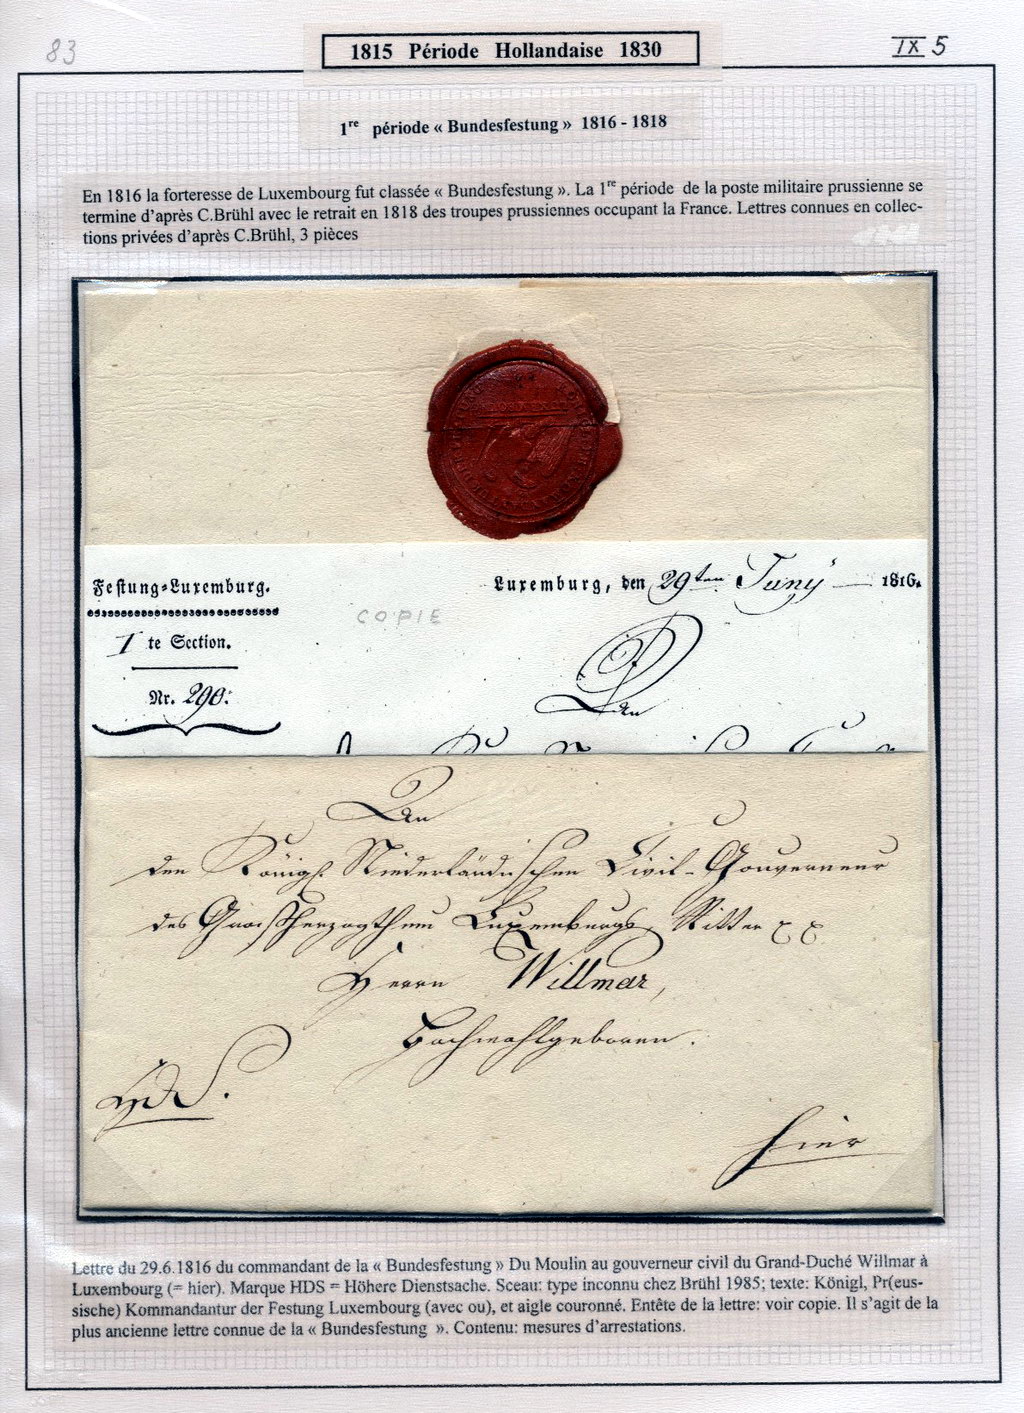 83
1815 Période Hollandaise 1830
IX 5
1re période « Bundesfestung » 1816 - 1818
En 1816 la forteresse de Luxembourg fut classée « Bundesfestung ». La 1re période de la poste militaire prussienne se
termine d'après C.Brühl avec le retrait en 1818 des troupes prussiennes occupant la France. Lettres connues en collec-
tions privées d'après C.Brühl, 3 pièces
Festung-Luxemburg.
Luxemburg, den 29ten Juny 1816.
COPIE
I te Section.
Nr. 290.
An
An
den Königl. Niederländischen Civil-Gouverneur
des Großherzogthum Luxemburgs, Ritter
Herrn Willmar,
Hochwohlgeboren.
HDS.
hier
Lettre du 29.6.1816 du commandant de la « Bundesfestung » Du Moulin au gouverneur civil du Grand-Duché Willmar à
Luxembourg (= hier). Marque HDS = Höhere Dienstsache. Sceau: type inconnu chez Brühl 1985; texte: Königl, Pr(eus-
sische) Kommandantur der Festung Luxembourg (avec ou), et aigle couronné. Entête de la lettre: voir copie. Il s'agit de la
plus ancienne lettre connue de la « Bundesfestung ». Contenu: mesures d'arrestations.